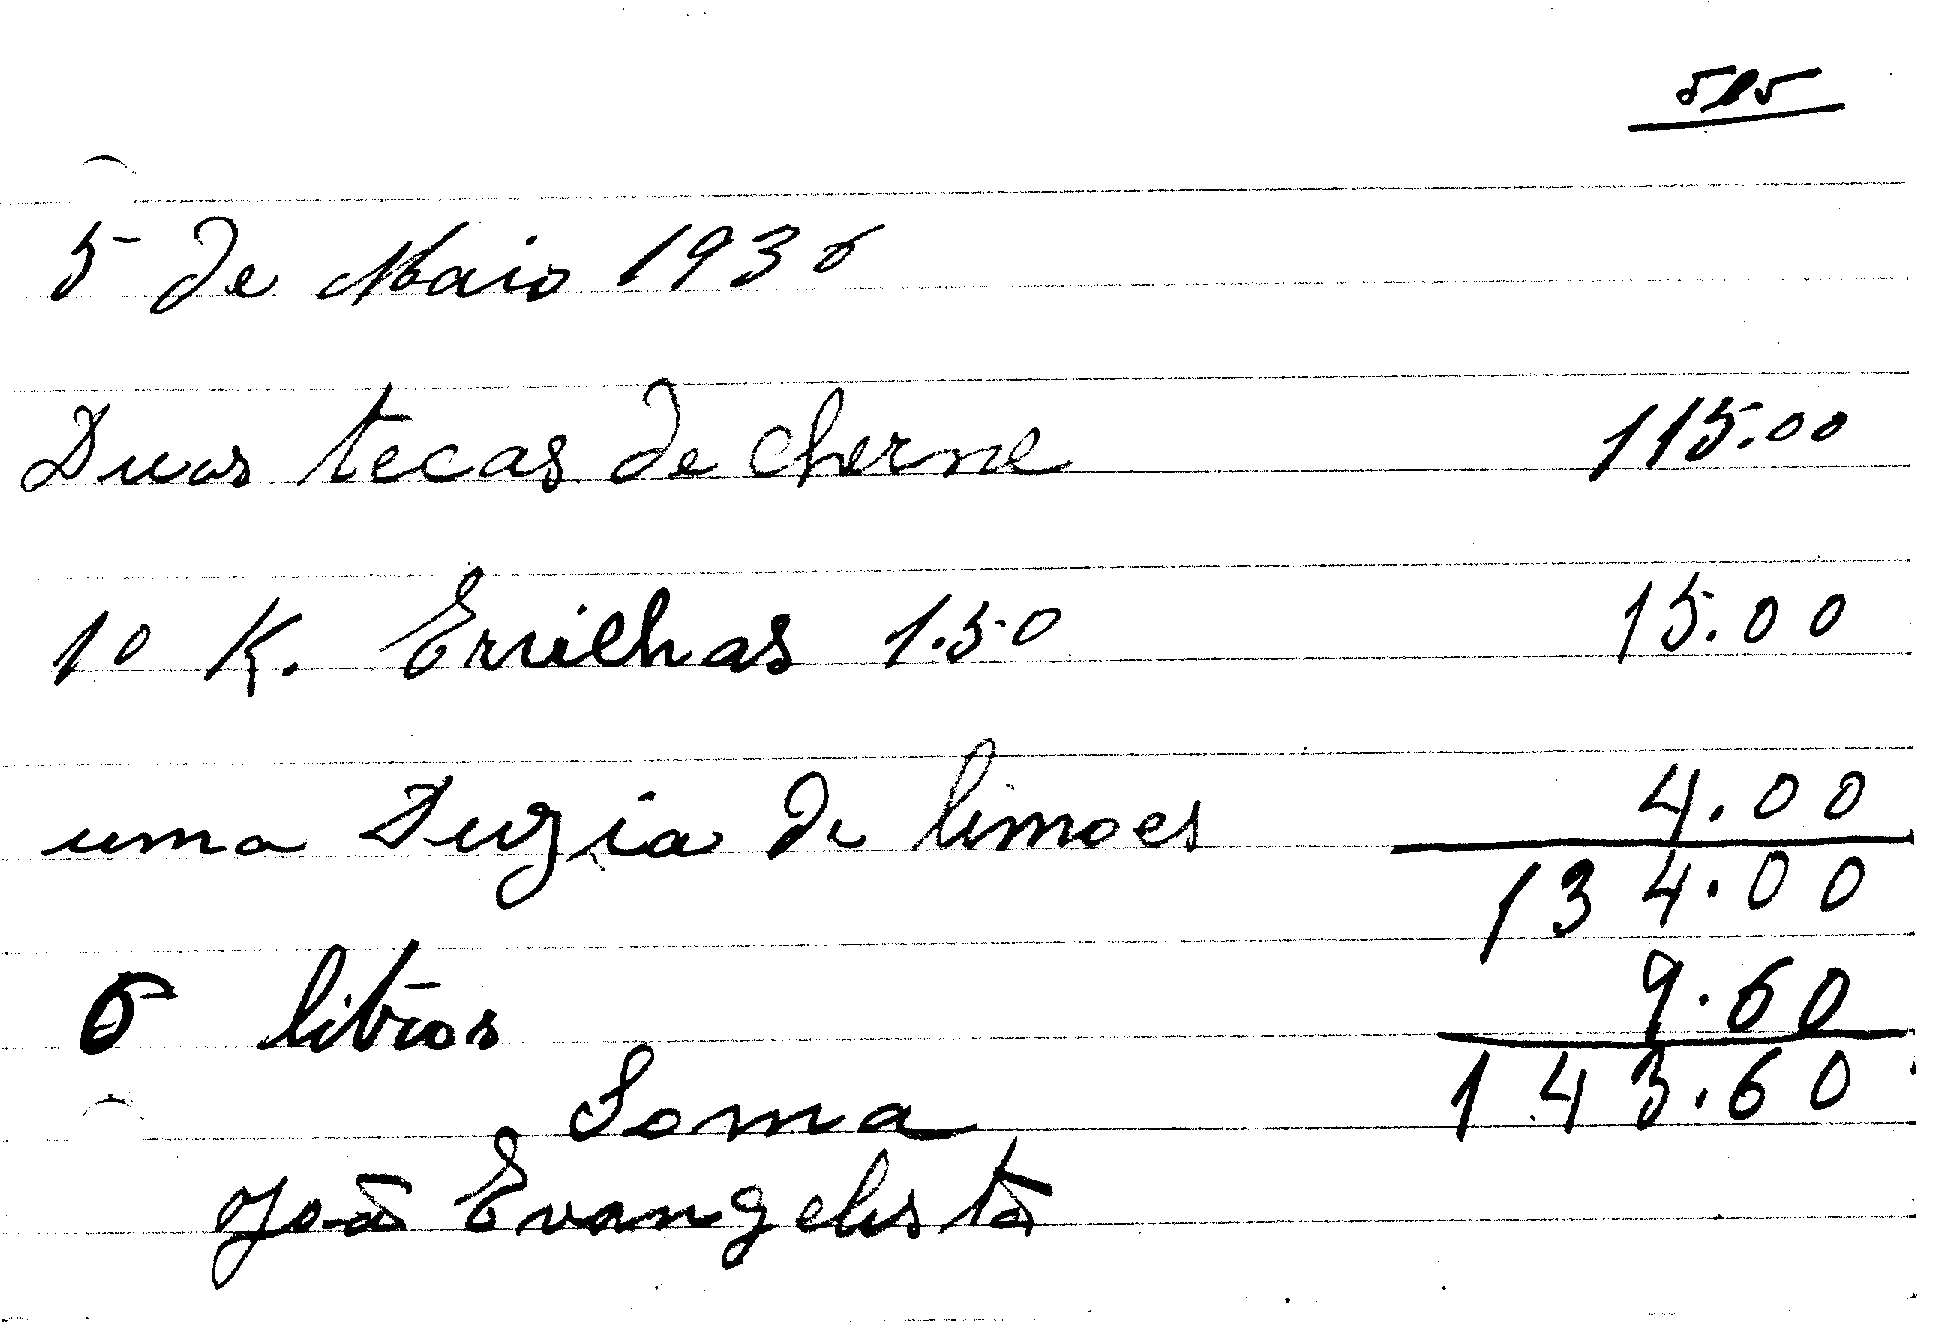 5 de Maio 1936
Duas tecas de cherne 115.00
10 K. Errilhas 1.50 15.00
uma Duzia de limoes 4.00
134.00
6 litros 9.60
Soma 143.60
João Evangelista